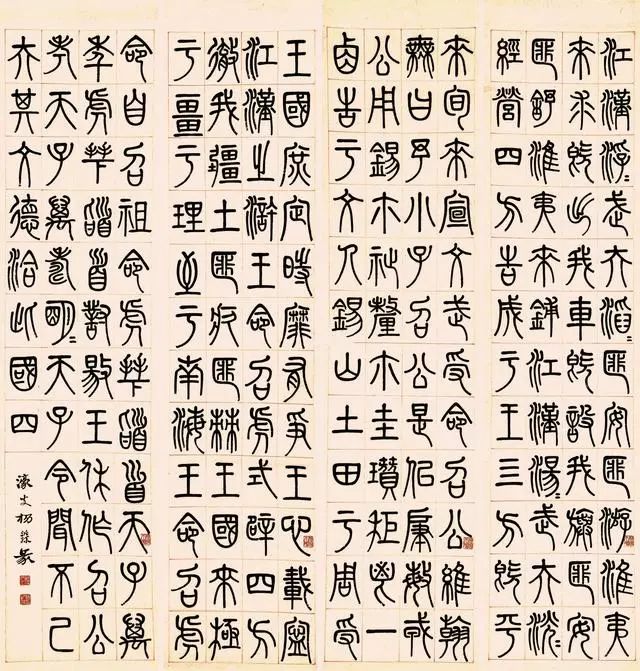 江漢浮=武夫滔=匪安匪游淮夷
來求既出我車既設我旟匪安
匪舒淮夷來鋪江漢湯=武夫洸=
經營四方告成于王四方既平
來旬來宣文武受命召公維翰
無曰予小子召公是似肇敏戎
公用錫爾祉釐爾圭瓚秬鬯一
卣告于文人錫山土田于周受
王國庶定時靡有爭王心載寧
江漢之滸王命召虎式辟四方
徹我疆土匪疚匪棘王國來極
于疆于理至于南海王命召虎
命自召祖命虎拜稽首天子萬
年虎拜稽首對揚王休作召公
考天子萬壽明=天子令聞不已
矢其文德洽此國四
濠叟楊篆